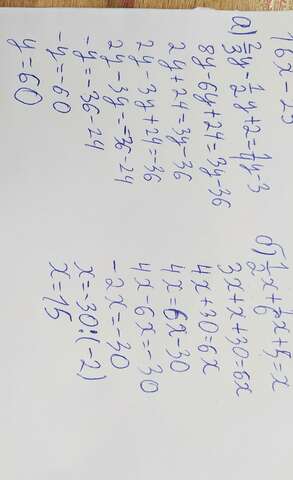 16x - 23
а) 2/3y - 1/2y + 2 = 1/4y - 3
8y - 6y + 24 = 3y - 36
2y + 24 = 3y - 36
2y - 3y + 24 = -36
2y - 3y = -36 - 24
-y = -36 - 24
-y = -60
y = 60
б) 1/2x + 1/6x + 5 = x
3x + x + 30 = 6x
4x + 30 = 6x
4x = 6x - 30
4x - 6x = -30
-2x = -30
x = -30 : (-2)
x = 15